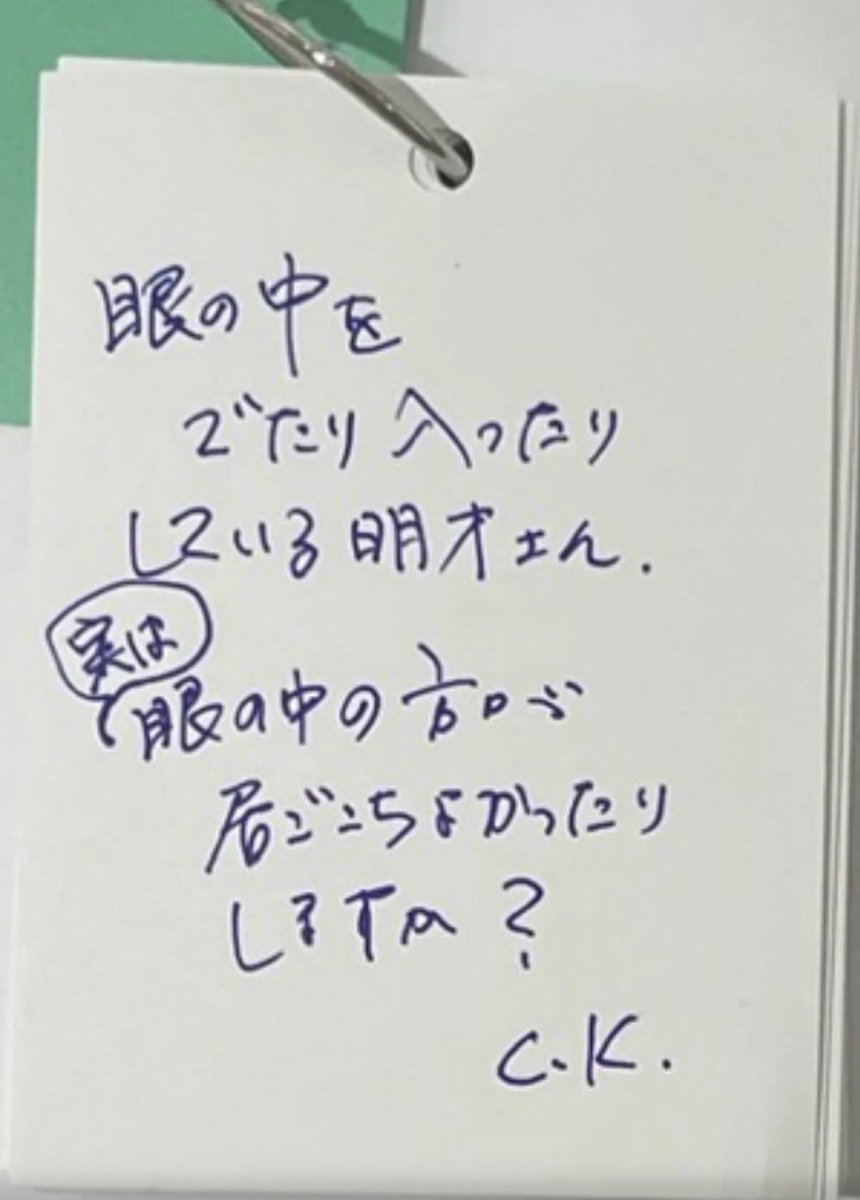 眼の中を
でたり入ったり
している明才さん.
実は
眼の中の方が
居ごこちよかったり
しますか?
C.K.